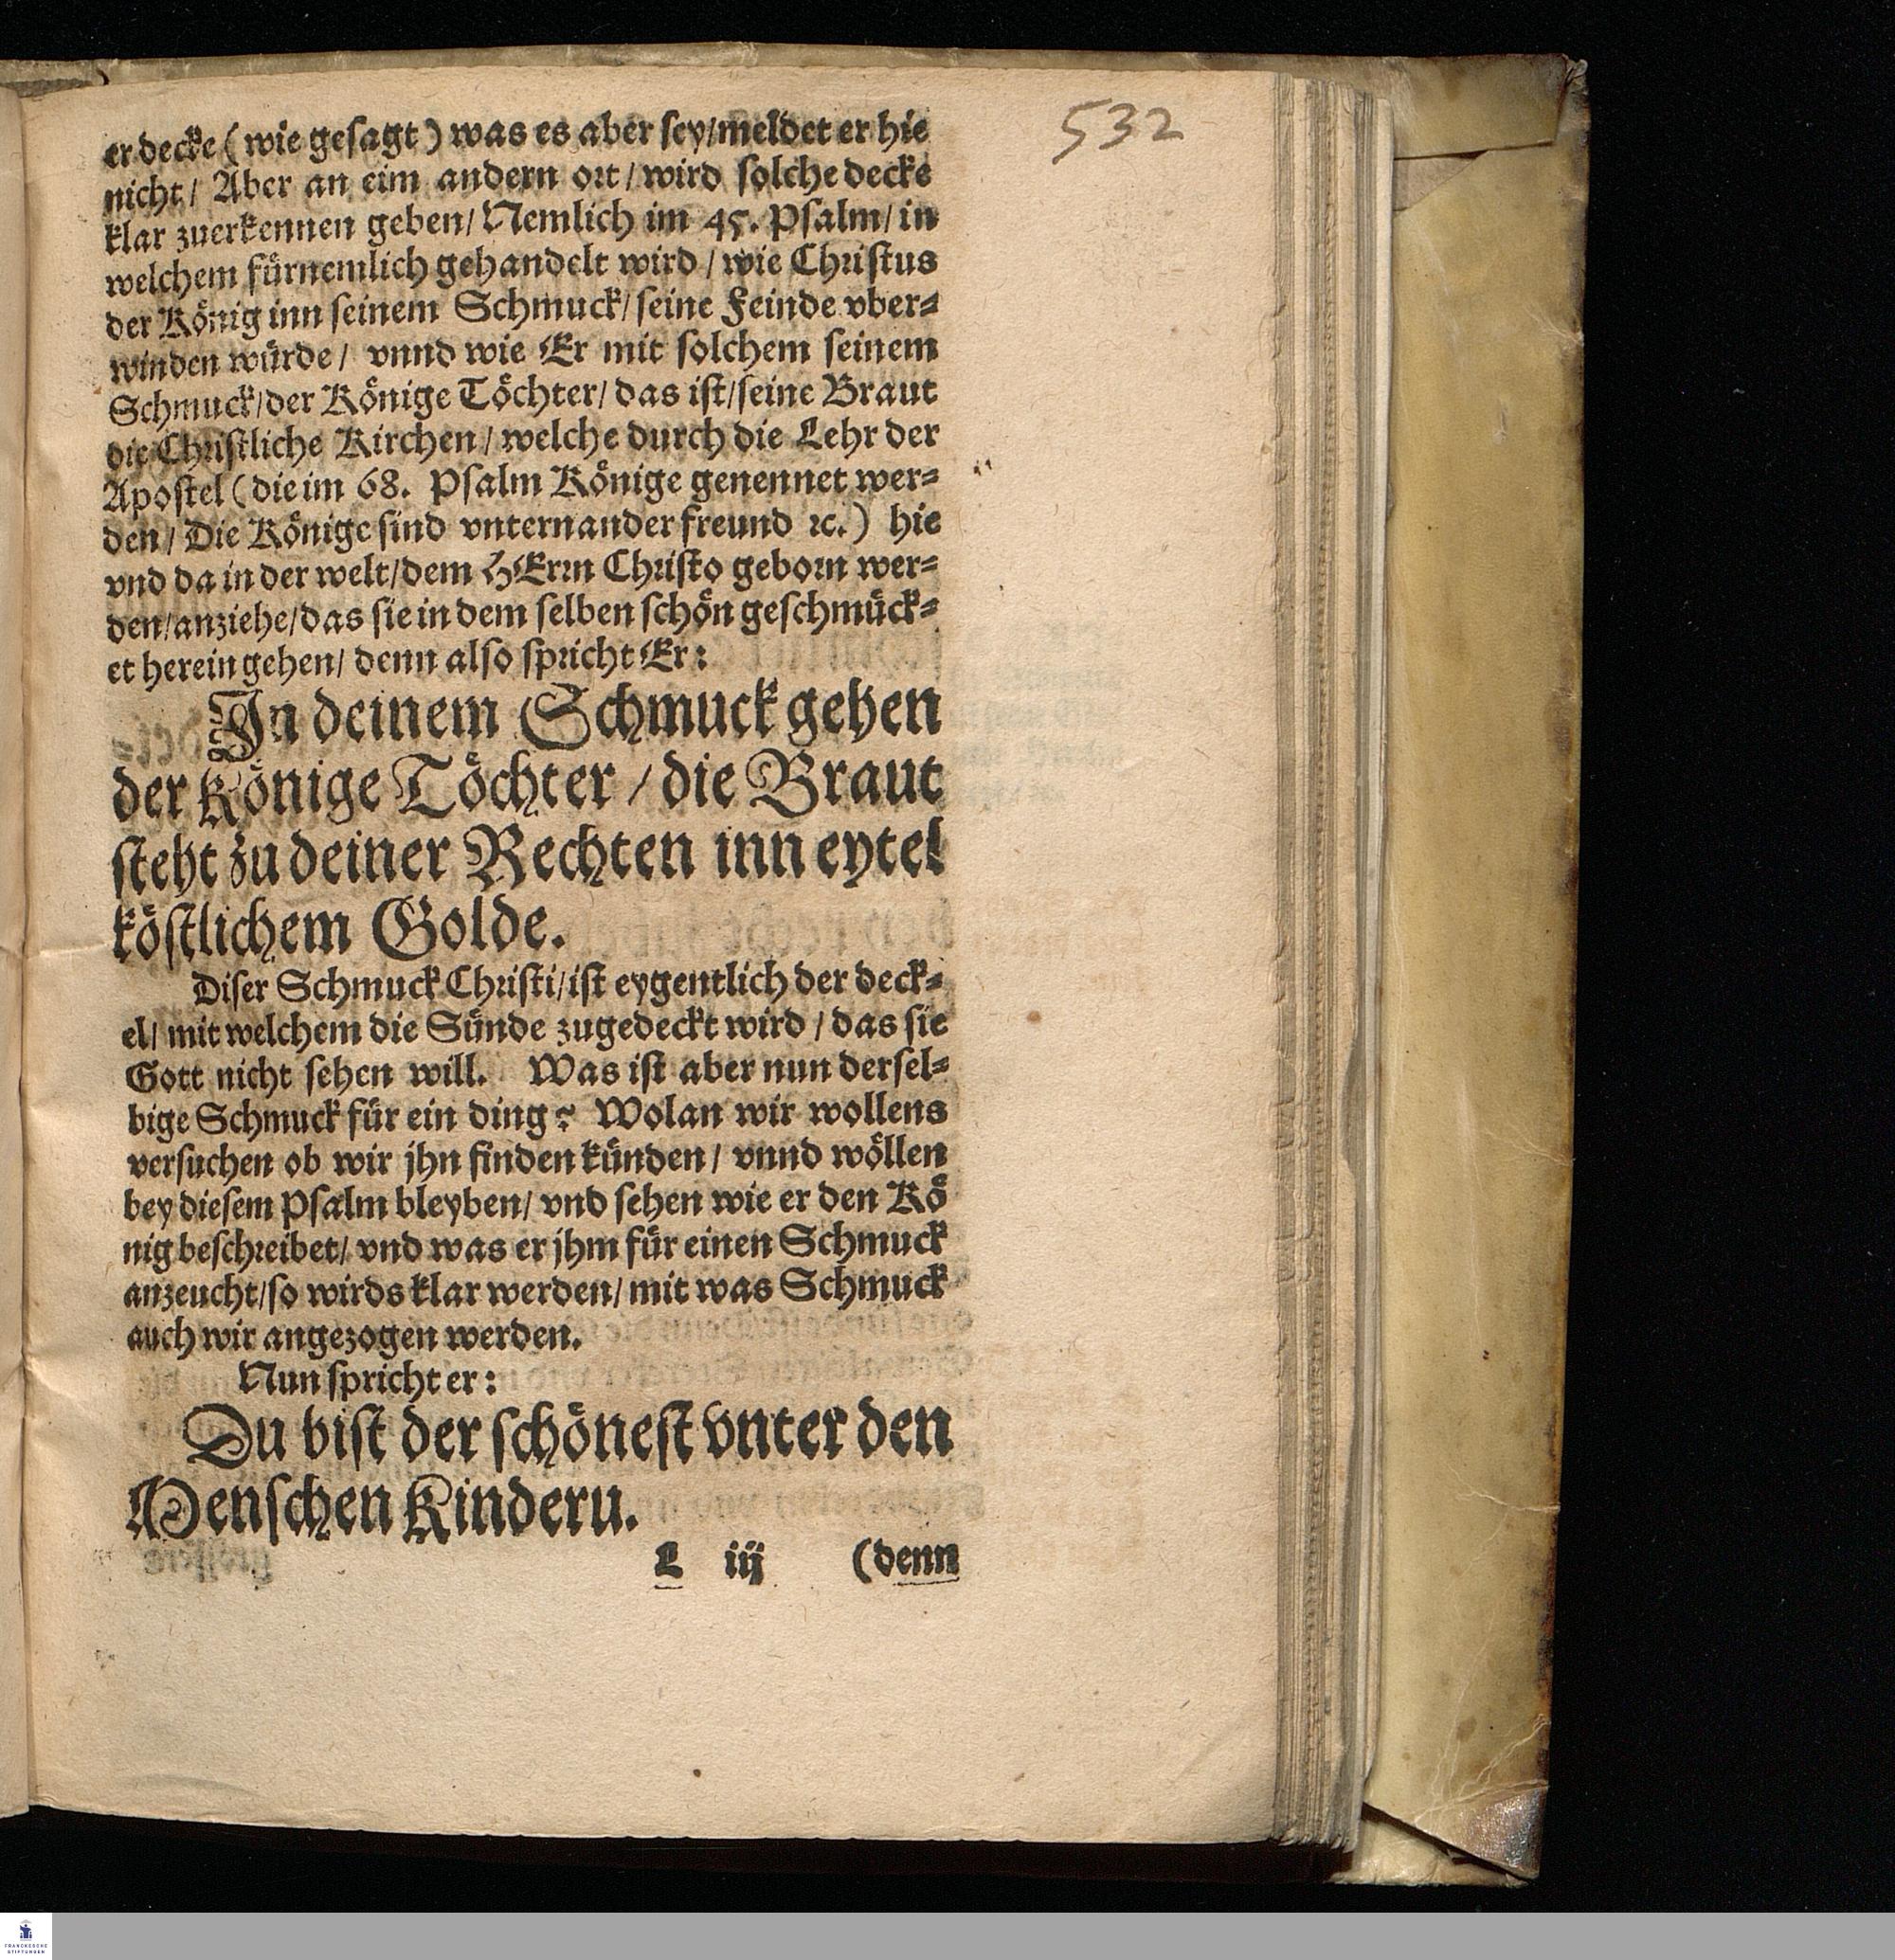 532
er decke (wie gesagt) was es aber sey/meldet er hie
nicht/ Aber an eim andern ort/ wird solche decke
klar zuerkennen geben/ Nemlich im 45. Psalm/ in
welchem fürnemlich gehandelt wird/ wie Christus
der König inn seinem Schmuck/ seine Feinde vber=
winden würde/ vnnd wie Er mit solchem seinem
Schmuck/der Könige Töchter/ das ist/seine Braut
die Christliche Kirchen/ welche durch die Lehr der
Apostel (die im 68. Psalm Könige genennet wer=
den/ Die Könige sind vnternander freund ꝛc.) hie
vnd da in der welt/dem HErrn Christo geborn wer=
den/anziehe/das sie in dem selben schön geschmück=
et herein gehen/ denn also spricht Er:
In deinem Schmuck gehen
der Könige Töchter / die Braut
steht zu deiner Rechten inn eytel
köstlichem Golde.
Diser Schmuck Christi/ist eygentlich der deck=
el/ mit welchem die Sünde zugedeckt wird / das sie
Gott nicht sehen will. Was ist aber nun dersel=
bige Schmuck für ein ding? Wolan wir wollens
versuchen ob wir jhn finden künden/ vnnd wöllen
bey diesem Psalm bleyben/ vnd sehen wie er den Kö
nig beschreibet/ vnd was er jhm für einen Schmuck
anzeucht/so wirds klar werden/ mit was Schmuck
auch wir angezogen werden.
Nun spricht er:
Du bist der schönest vnter den
Menschen Kinderu.
L iij (denn
FRANCKESCHE
STIFTUNGEN